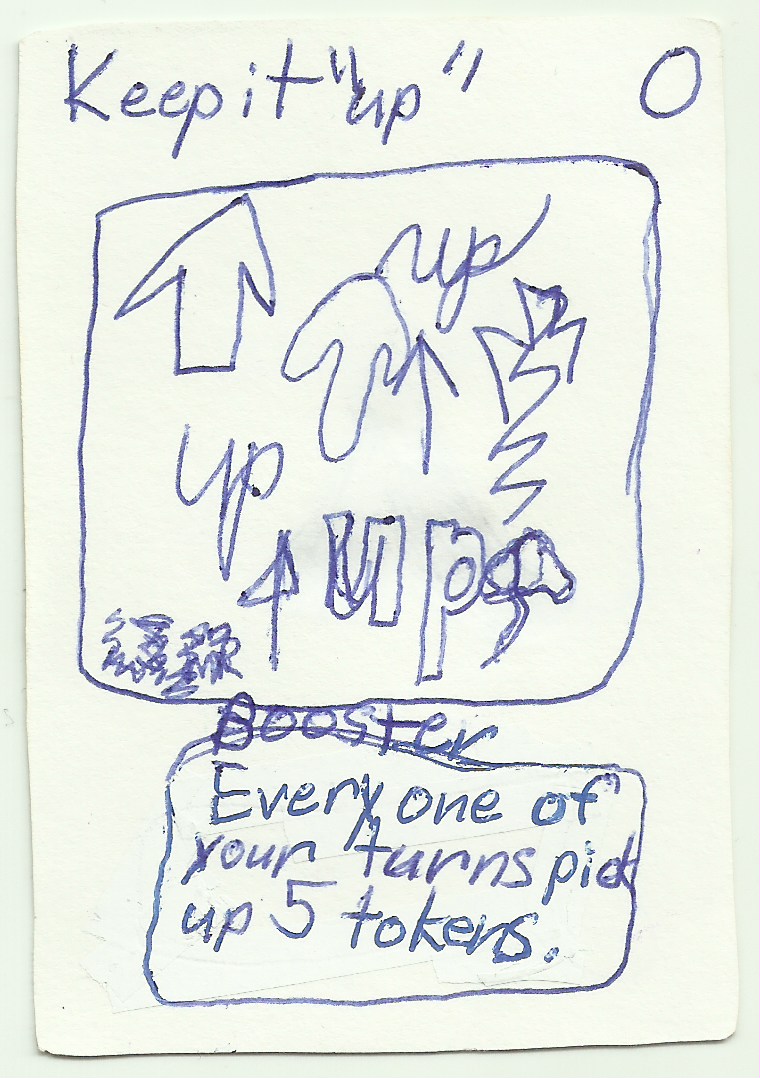 Keep it "up"
0
up
up
up
Booster
Every one of
your turns pick
up 5 tokens.